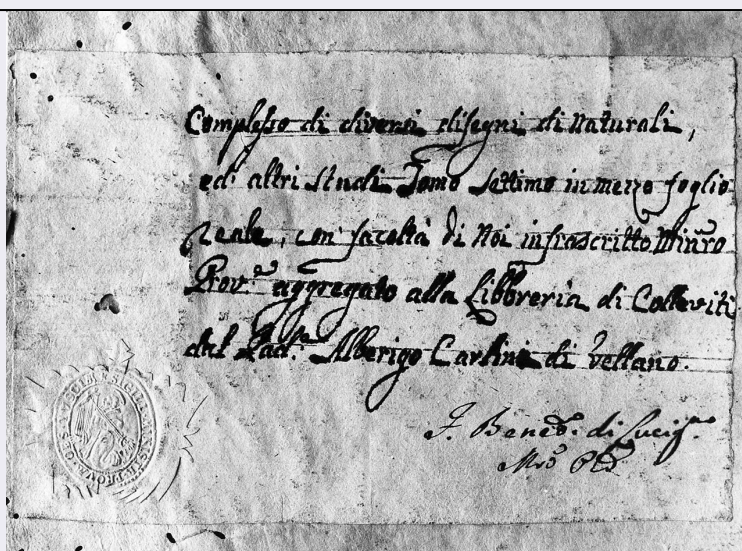 Complesso di diversi disegni di Naturali,
ed altri Studi Tomo Settimo in mezzo foglio
Reale, con facoltà di Noi infrascritto Minro
Prov.e aggregato alla Libbreria di Colleviti
dal Pad.e Alberigo Carlini di Vellano.
F. Bened.o di